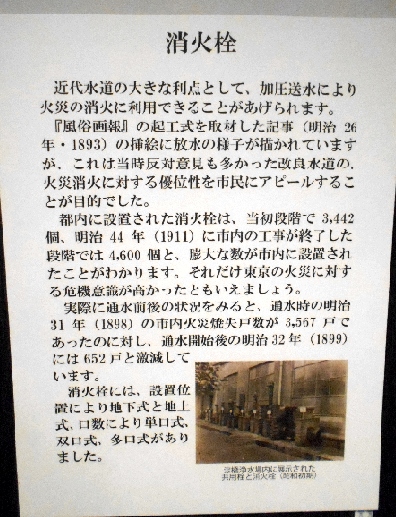 消火栓
近代水道の大きな利点として、加圧送水により
火災の消火に利用できることがあげられます。
『風俗画報』の起工式を取材した記事（明治 26
年・1893）の挿絵に放水の様子が描かれています
が、これは当時反対意見も多かった改良水道の、
火災消火に対する優位性を市民にアピールするこ
とが目的でした。
都内に設置された消火栓は、当初段階で 3,442
個、明治 44 年（1911）に市内の工事が終了した
段階では 4,600 個と、膨大な数が市内に設置され
たことがわかります、それだけ東京の火災に対す
る危機意識が高かったともいえましょう。
実際に通水前後の状況をみると、通水時の明治
31 年（1898）の市内火災焼失戸数が 3,567 戸で
あったのに対し、通水開始後の明治32年（1899）
には 652 戸と激減して
います。
消火栓には、設置位
置により地下式と地上
式、口数により単口式、
双口式、多口式があり
ました。
淀橋浄水場内に展示された
共用栓と消火栓（昭和初期）